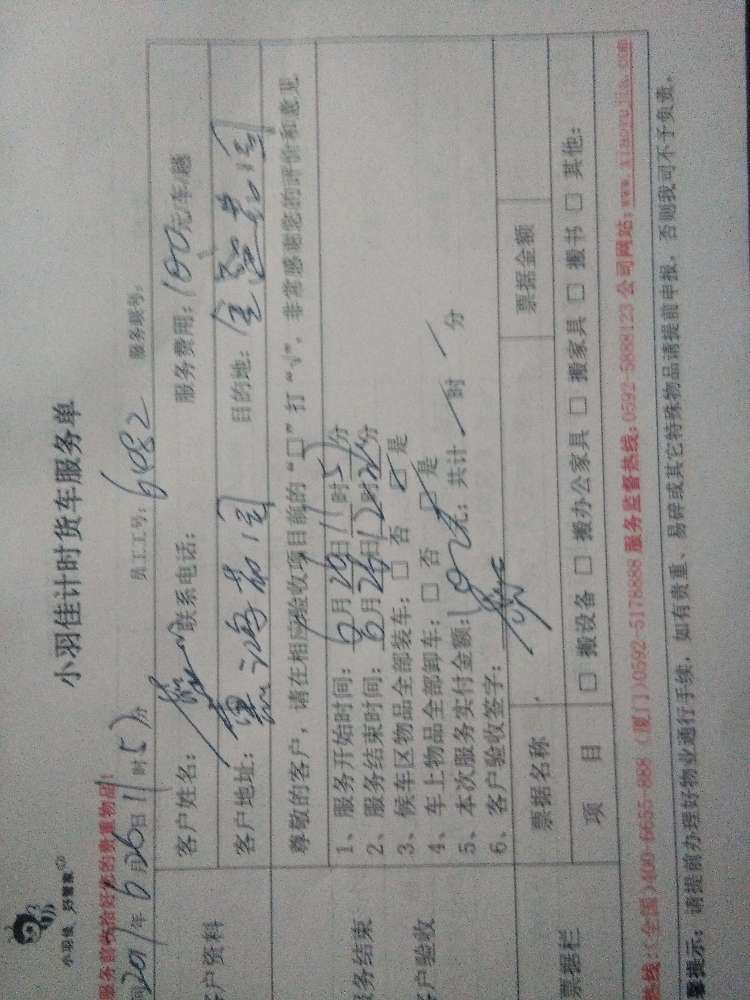 小羽佳 好管家
小羽佳计时货车服务单
服务前收拾好您的贵重物品!
间2017年6月26日11时57分 员工工号: 6482 服务账号:
客户资料
客户姓名: 联系电话: 服务费用: 100元/车/趟
客户地址: 目的地:
尊敬的客户, 请在相应验收项目前的“□”打“√”, 非常感谢您的评价和意见
服务结束
客户验收
1、服务开始时间: 6月26日11时57分
2、服务结束时间: 6月26日12时22分
3、候车区物品全部装车: □ 否 □ 是
4、车上物品全部卸车: □ 否 □ 是
5、本次服务实付金额: 100元; 共计 时 分
6、客户验收签字:
票据栏
票据名称 票据金额
项 目 □ 搬设备 □ 搬办公家具 □ 搬家具 □ 搬书 □ 其他:
热线:(全国)400-6655-888 (厦门)0592-5178888 服务监督热线:0592-5888123 公司网站:www.xiaoyujia.com
馨提示: 请提前办理好物业通行手续, 如有贵重、易碎或其它特殊物品请提前申报, 否则我司不予负责。